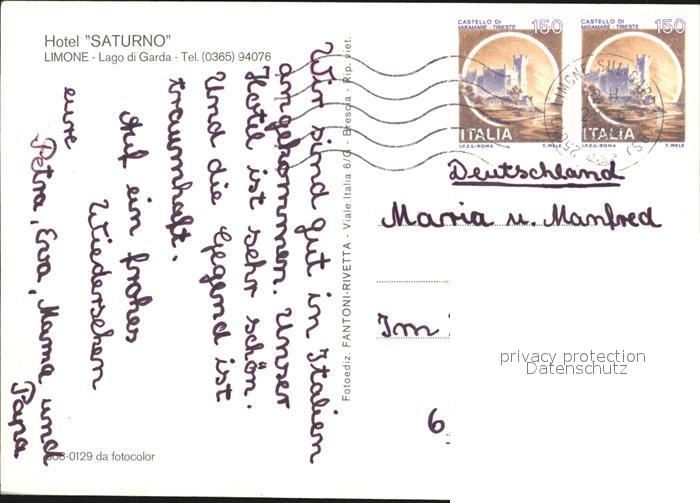 Hotel "SATURNO"
LIMONE - Lago di Garda - Tel. (0365) 94076
Wir sind gut in Italien
angekommen. Unser
Hotel ist sehr schön.
Und die Gegend ist
traumhaft.
Auf ein frohes
Wiedersehen
eure
Petra, Erva, Mama und
Papa
308-0129 da fotocolor
Fotoediz. FANTONI-RIVETTA - Viale Italia 6/G - Brescia - Rip. viet.
CASTELLO DI
MIRAMARE - TRIESTE
150
ITALIA
I.P.Z.S.-ROMA T. MELE
CASTELLO DI
MIRAMARE - TRIESTE
150
ITALIA
I.P.Z.S.-ROMA T. MELE
LIMONE SUL GARDA
Deutschland
Maria u. Manfred
Im
6
privacy protection
Datenschutz